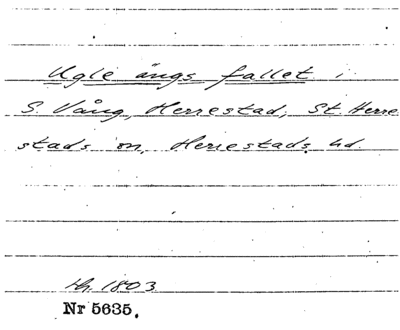 Ugle ängs fallet i
S. Vång, Herrestad, St Herre
stads sn, Herrestads hd
Hr. 1803
Nr 5635.